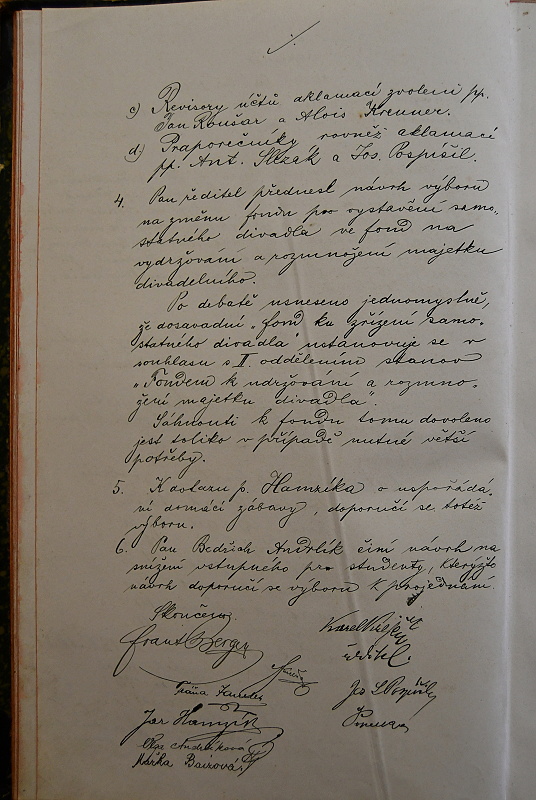 c) Revisory účtů aklamací zvoleni pp.
Jan Roušar a Alois Krenner.
d) Praporečníky rovněž aklamací
pp. Ant. Slezák a Jos. Pospíšil.
4. Pan ředitel přednesl návrh výboru
na změnu fondu pro vystavění samo-
statného divadla ve fond na
vydržování a rozmnožení majetku
divadelního.
Po debatě usneseno jednomyslně,
že dosavadní „fond ku zřízení samo-
statného divadla“ ustanovuje se v
souhlasu s II. oddělením stanov
„Fondem k udržování a rozmno-
žení majetku divadla“.
Sáhnouti k fondu tomu dovoleno
jest toliko v případě nutné větší
potřeby.
5. K dotazu p. Hamzíka o uspořádá-
ní domácí zábavy, doporučí se totéž
výboru.
6. Pan Bedřich Andrlík činí návrh na
snížení vstupného pro studenty, kterýžto
návrh doporučí se výboru k projednání.
Skončeno.
Frant Berger
Karel
ředitel.
Jos Pospíšil
Jar Hamzík
Olga Andrlíková
Mařka